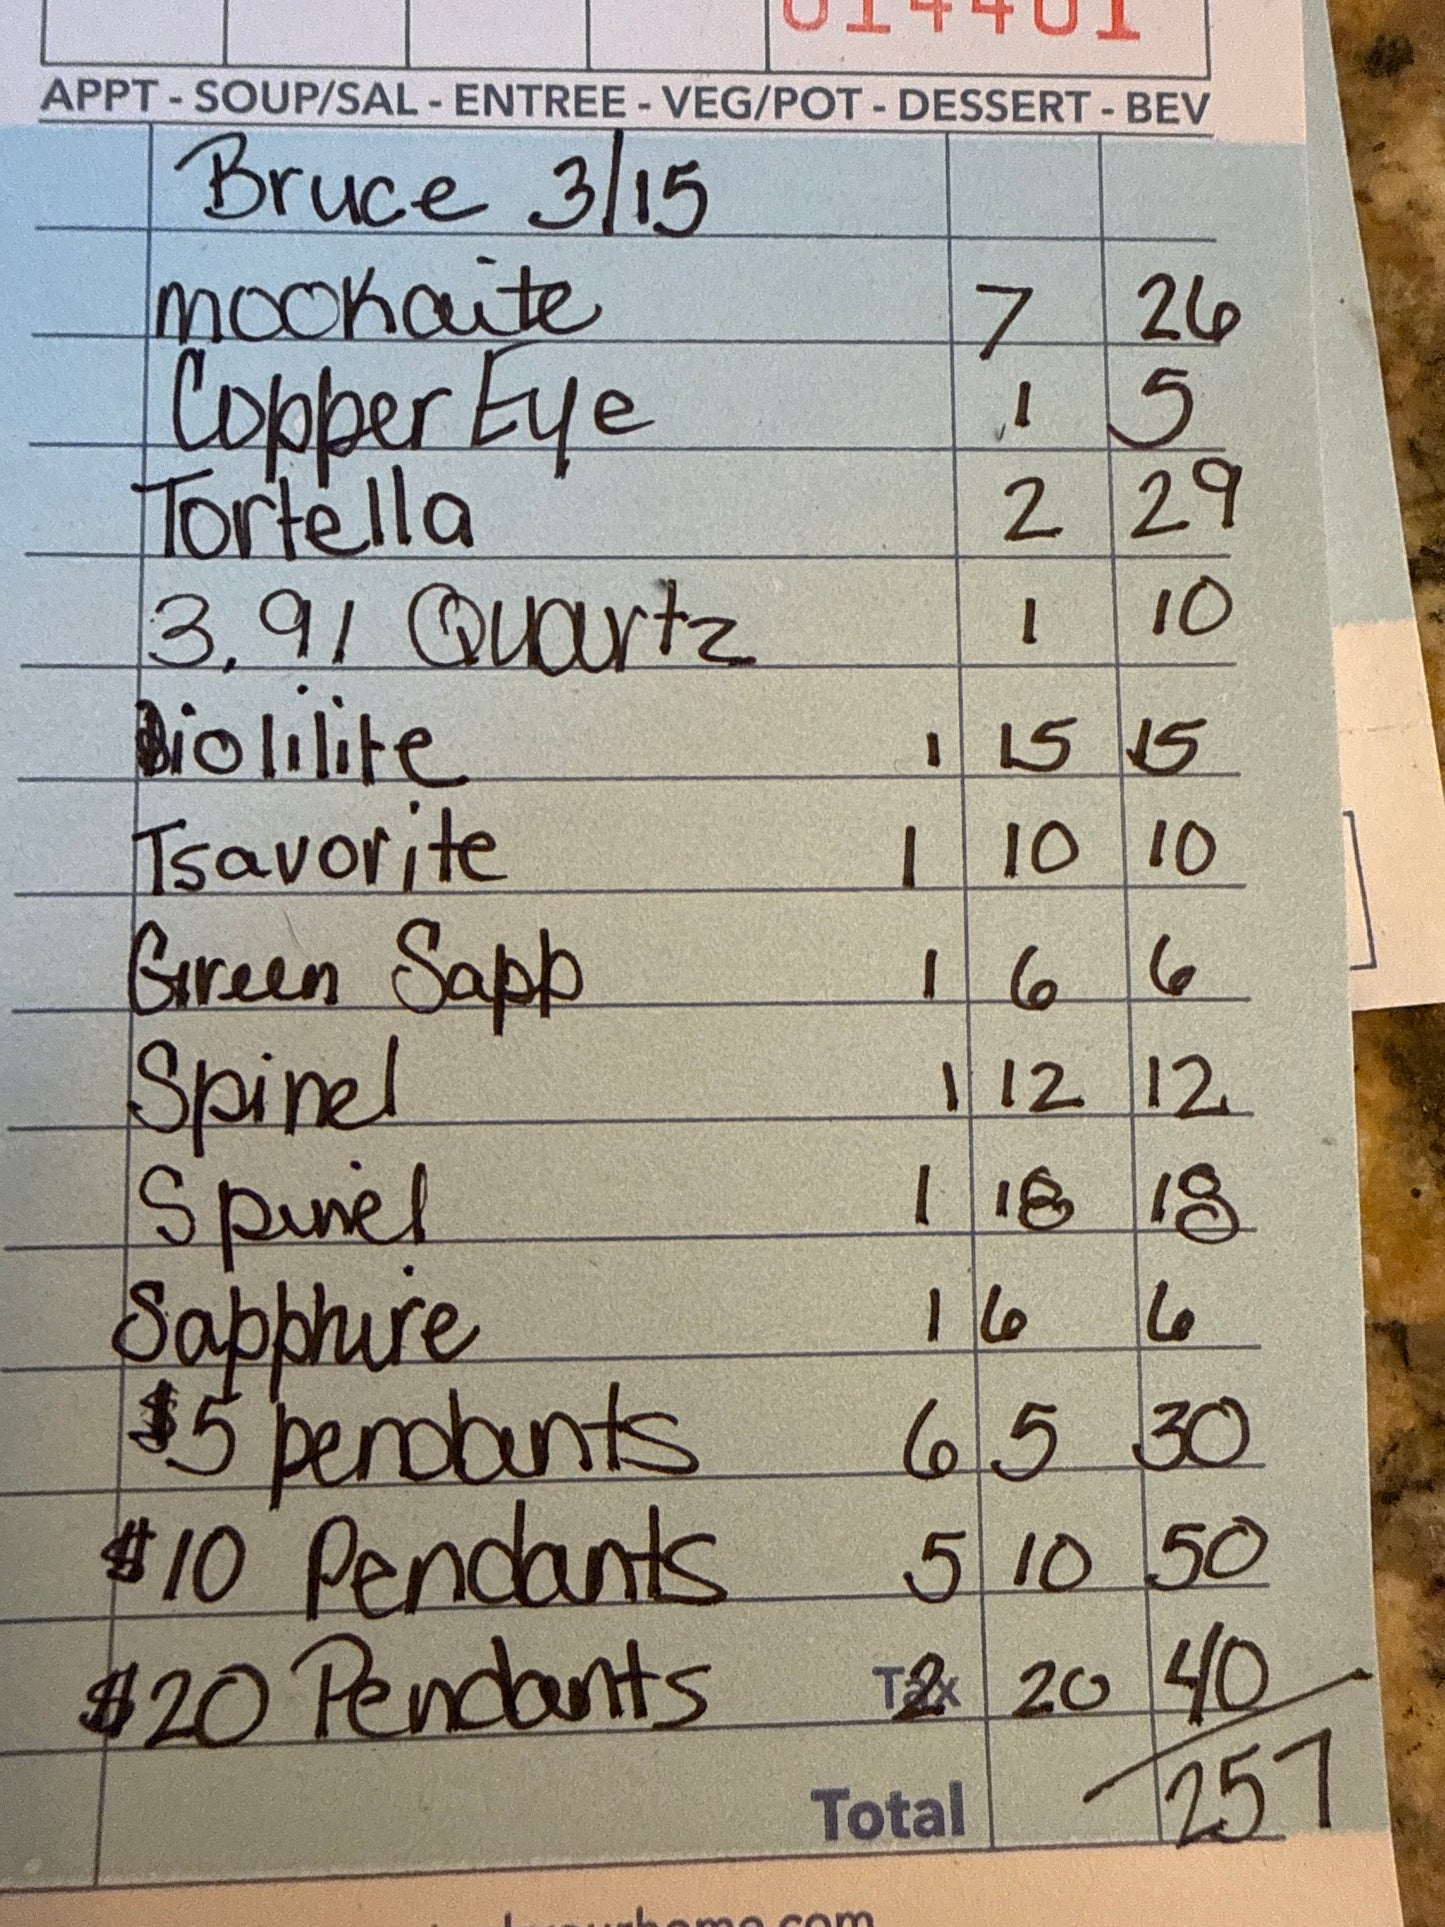 014401
APPT - SOUP/SAL - ENTREE - VEG/POT - DESSERT - BEV
Bruce 3/15
mookaite 7 26
Copper Eye 1 5
Tortella 2 29
3.91 Quartz 1 10
iolilite 1 15 15
Tsavorite 1 10 10
Green Sapp 1 6 6
Spinel 1 12 12
Spinel 1 18 18
Sapphire 1 6 6
$5 pendants 6 5 30
$10 Pendants 5 10 50
$20 Pendants Tax 2 20 40
Total 257